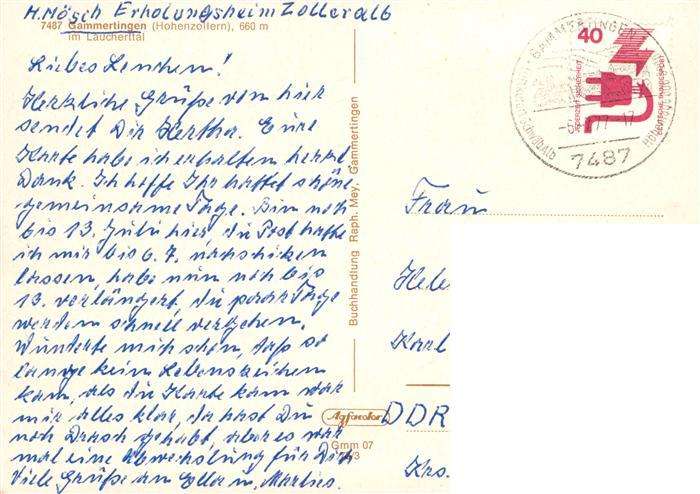 H. Mösch Erholungsheim Zolleralb
7487 Gammertingen (Hohenzollern), 660 m
im Laucherttal
Liebes Lenchen!
Herzliche Grüße von hier
sendet Dir Hertha. Eure
Karte habe ich erhalten herzl.
Dank. Ich hoffe Ihr hattet schöne
gemeinsame Tage. Bin noch
bis 13. Juli hier, die Post hatte
ich mir bis 6.7. nachschicken
lassen, habe nun noch bis
13. verlängert, die paar Tage
werden schnell vergehen.
Wunderte mich schon, daß so
lange kein Lebenszeichen
kam, als die Karte kam war
mir alles klar, da hast Du
noch Drasch gehabt, aber es war
mal eine Abwechslung für Dich
Viele Grüße an Ella u. Marlies.
Buchhandlung Raph. Mey, Gammertingen
Agfacolor
Gmm 07
/3
40
JEDERZEIT SICHERHEIT
DEUTSCHE BUNDESPOST
GAMMERTINGEN
7487
Frau
Hele
Karl
DDR
Krs.